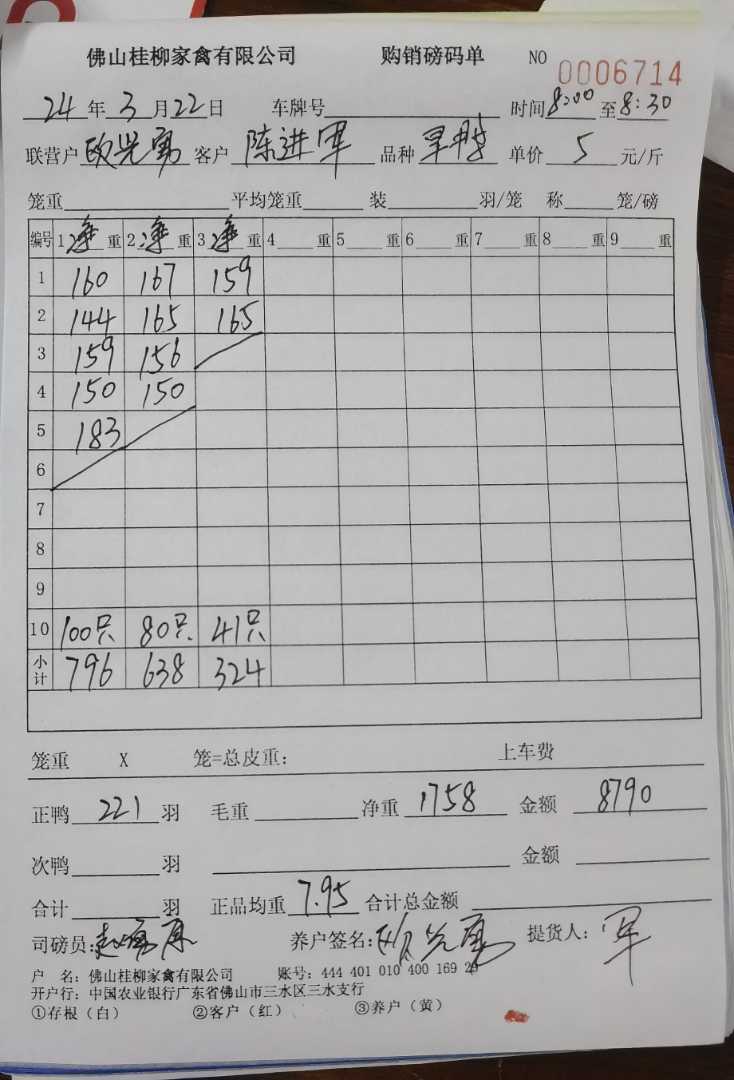 佛山桂柳家禽有限公司 购销磅码单 NO 0006714
24年3月22日 车牌号 时间8:00至8:30
联营户 欧光勇 客户 陈进军 品种 单价 5 元/斤
笼重 平均笼重 装 羽/笼 称 笼/磅
编号 1净重 2净重 3净重 4 重 5 重 6 重 7 重 8 重 9 重
1 160 167 159
2 144 165 165
3 159 156
4 150 150
5 183
6
7
8
9
10 100只 80只 41只
小计 796 638 324
笼重 X 笼=总皮重: 上车费
正鸭 221 羽 毛重 净重 1758 金额 8790
次鸭 羽 金额
合计 羽 正品均重 7.95 合计总金额
司磅员: 养户签名:欧光勇 提货人: 军
户 名: 佛山桂柳家禽有限公司 账号: 444 401 010 400 169 20
开户行: 中国农业银行广东省佛山市三水区三水支行
①存根(白) ②客户(红) ③养户(黄)